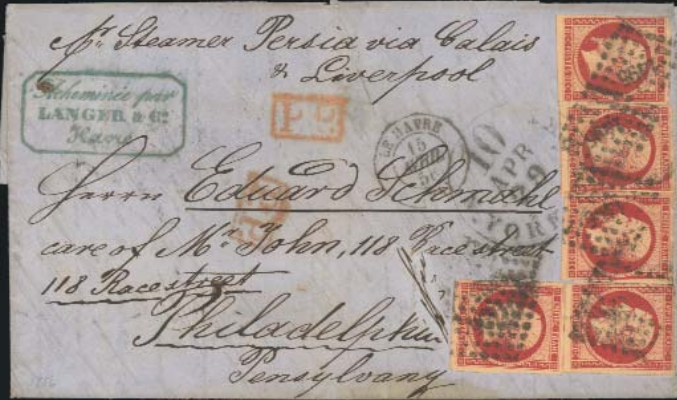 Pr Steamer Persia via Calais
& Liverpool
Acheminée par
LANGER & Co.
Havre
P.P.
LE HAVRE
15
AVRIL
56
10
APR
29
YORK
Herrn Eduard Schmahl
care of Mr John, 118 Race street
118 Race street
Philadelphia
Pensylvany
1856